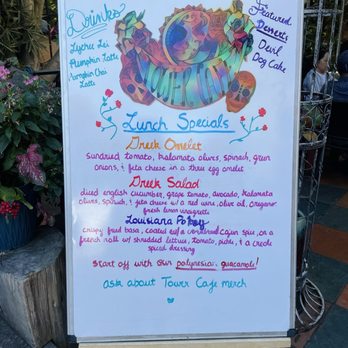 Drinks
Lychee Lei
Pumpkin Latte
Pumpkin Chai
Latte
Featured
Desserts
Devil
Dog Cake
TOWER CAFE
Lunch Specials
Greek Omelet
sundried tomato, kalamata olives, spinach, green
onions, & feta cheese in a three egg omelet
Greek Salad
diced english cucumber, grape tomato, avocado, kalamata
olives, spinach, & feta cheese w/ a red wine, olive oil, oregano
fresh lemon vinaigrette
Louisiana Po boy
crispy fried basa, coated w/ a cornbread cajun spice, on a
french roll w/ shredded lettuce, tomato, pickle, & a creole
spiced dressing
start off with our polynesian guacamole!
ask about Tower Cafe merch